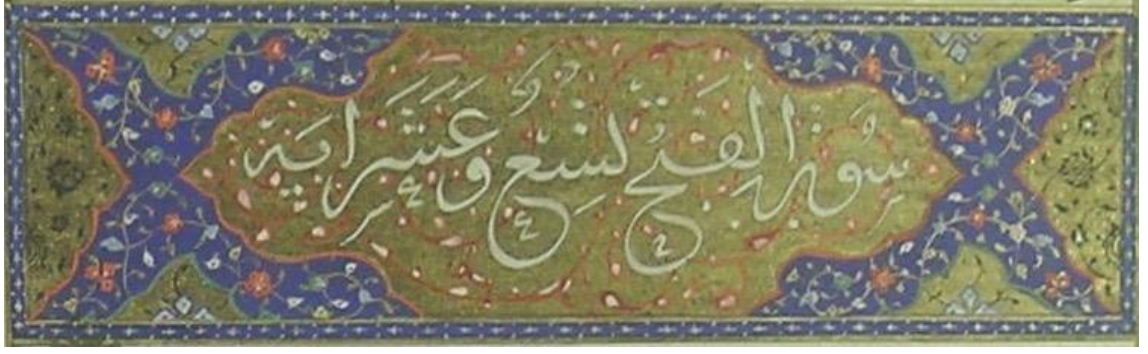 سورة الفتح تسع وعشر اية